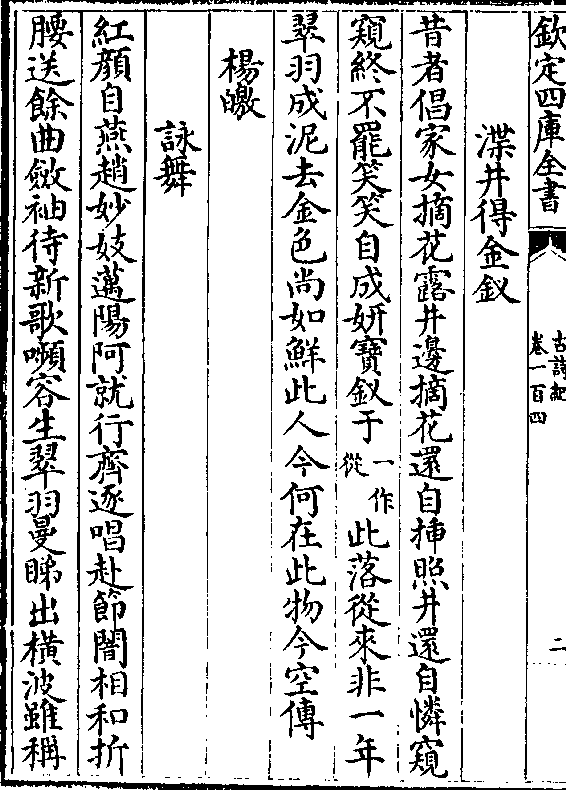 欽定四庫全書
古詩紀
卷一百四
二
渫井得金釵
昔者倡家女摘花露井邊摘花還自揷照井還自憐窺
窺終不罷笑笑自成妍寶釵于一作從此落從來非一年
翠羽成泥去金色尚如鮮此人今何在此物今空傳
楊皦
詠舞
紅顔自燕趙妙妓邁陽阿就行齊逐唱赴節闇相和折
腰送餘曲斂袖待新歌嚬容生翠羽曼睇出橫波雖稱